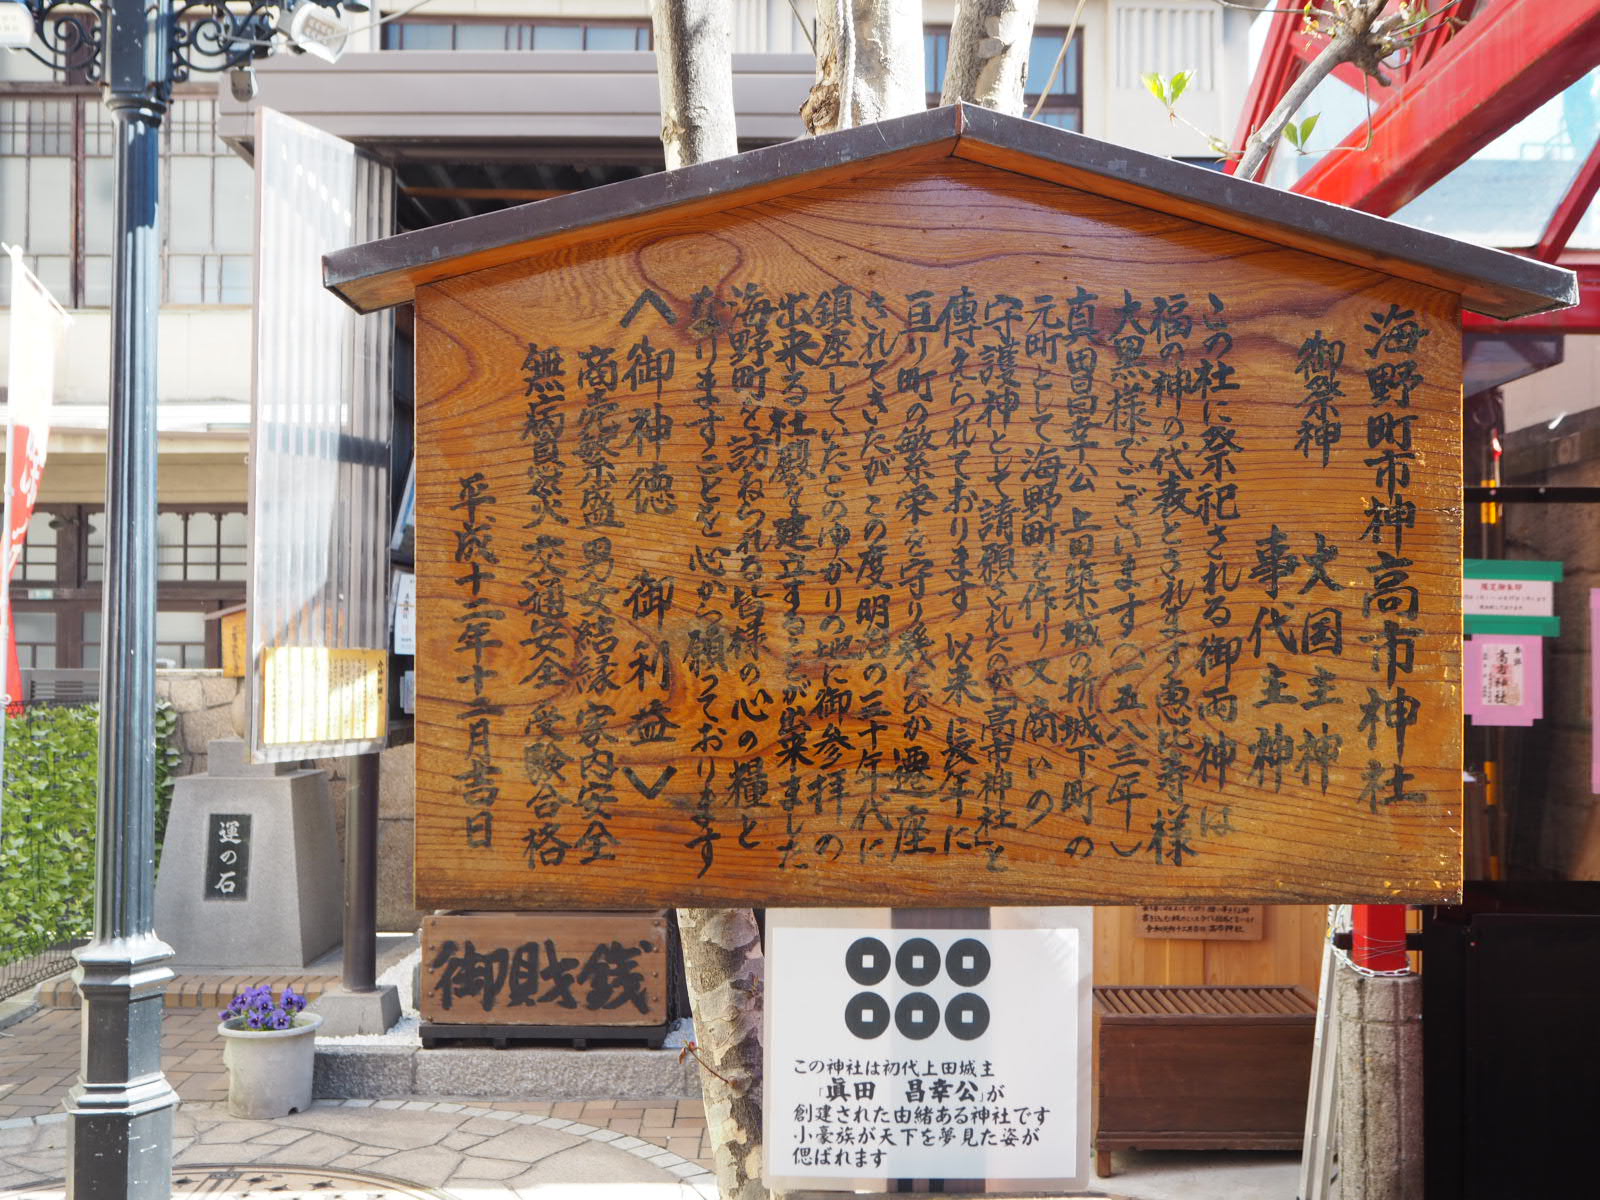 海野町市神高市神社
御祭神
大国主神
事代主神
この社に祭祀される御両神は
福の神の代表とされます恵比寿様
大黒様でございます（一五八三年）
真田昌幸公上田築城の折城下町の
元町として海野町を作り又商いの
守護神として請願されたのが「高市神社」と
傳えられております 以来長年に
亘り町の繁栄を守り幾たびか遷座
されてきたが この度明治の三十年代に
鎮座していたこのゆかりの地に御参拝の
出来る社殿を建立することが出来ました
海野町を訪ねられる皆様の心の糧と
なりますことを心から願っております
〈御神徳 御利益〉
商売繁盛 男女結縁 家内安全
無病息災 交通安全 受験合格
平成十二年十二月吉日
運の石
御賽銭
この神社は初代上田城主
「眞田 昌幸公」が
創建された由緒ある神社です
小豪族が天下を夢見た姿が
偲ばれます
高市神社